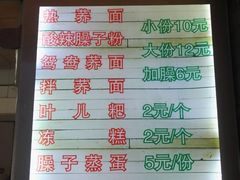 热荞面
酸辣臊子粉 小份10元
鸳鸯荞面 大份12元
拌荞面 加臊6元
叶儿粑 2元/个
冻糕 2元/个
臊子蒸蛋 5元/份